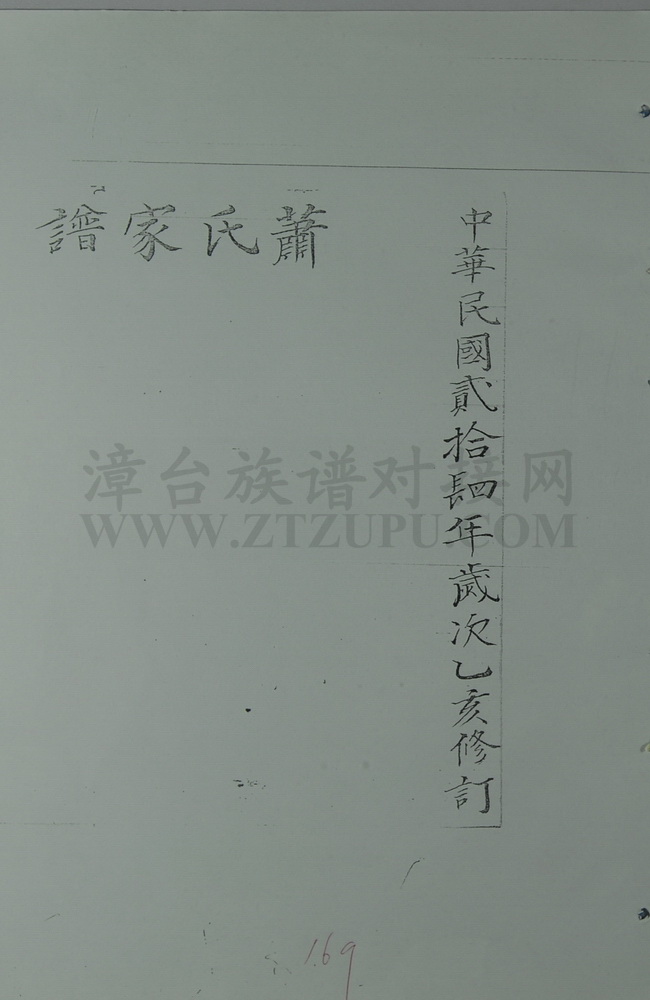 中華民國貳拾肆年歲次乙亥修訂
蕭氏家譜
漳台族谱对接网
WWW.ZTZUPU.COM
169